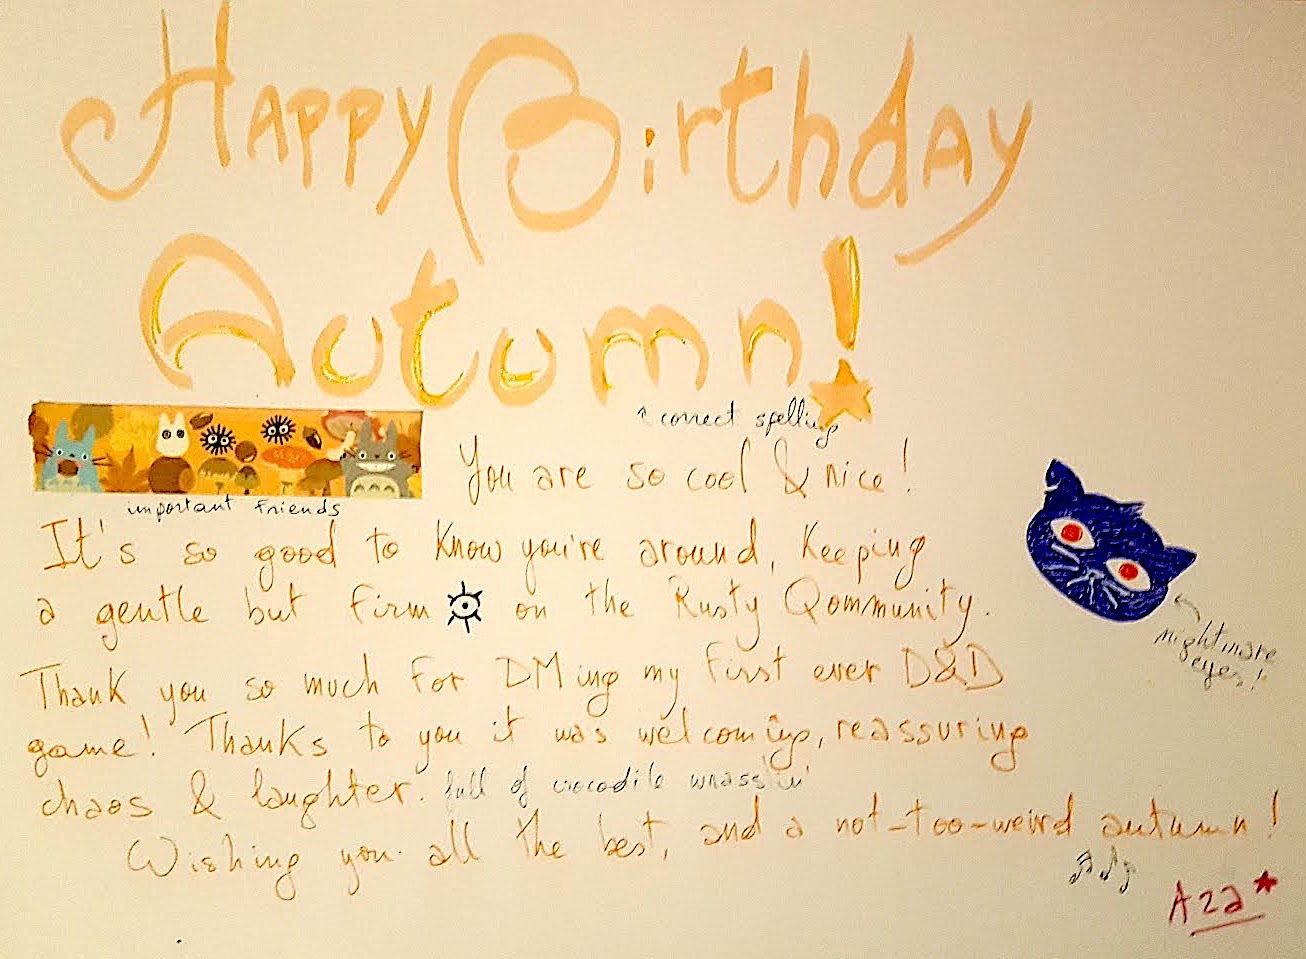 Happy Birthday
Autumn!
↑ correct spelling
important friends
You are so cool & nice!
It's so good to know you're around, keeping
a gentle but firm on the Rusty Qommunity.
nightmare
eyes!
Thank you so much for DMing my first ever D&D
game! Thanks to you it was welcoming, reassuring
chaos & laughter. full of crocodile wrass'lin'
Wishing you all the best, and a not-too-weird autumn!
Aza